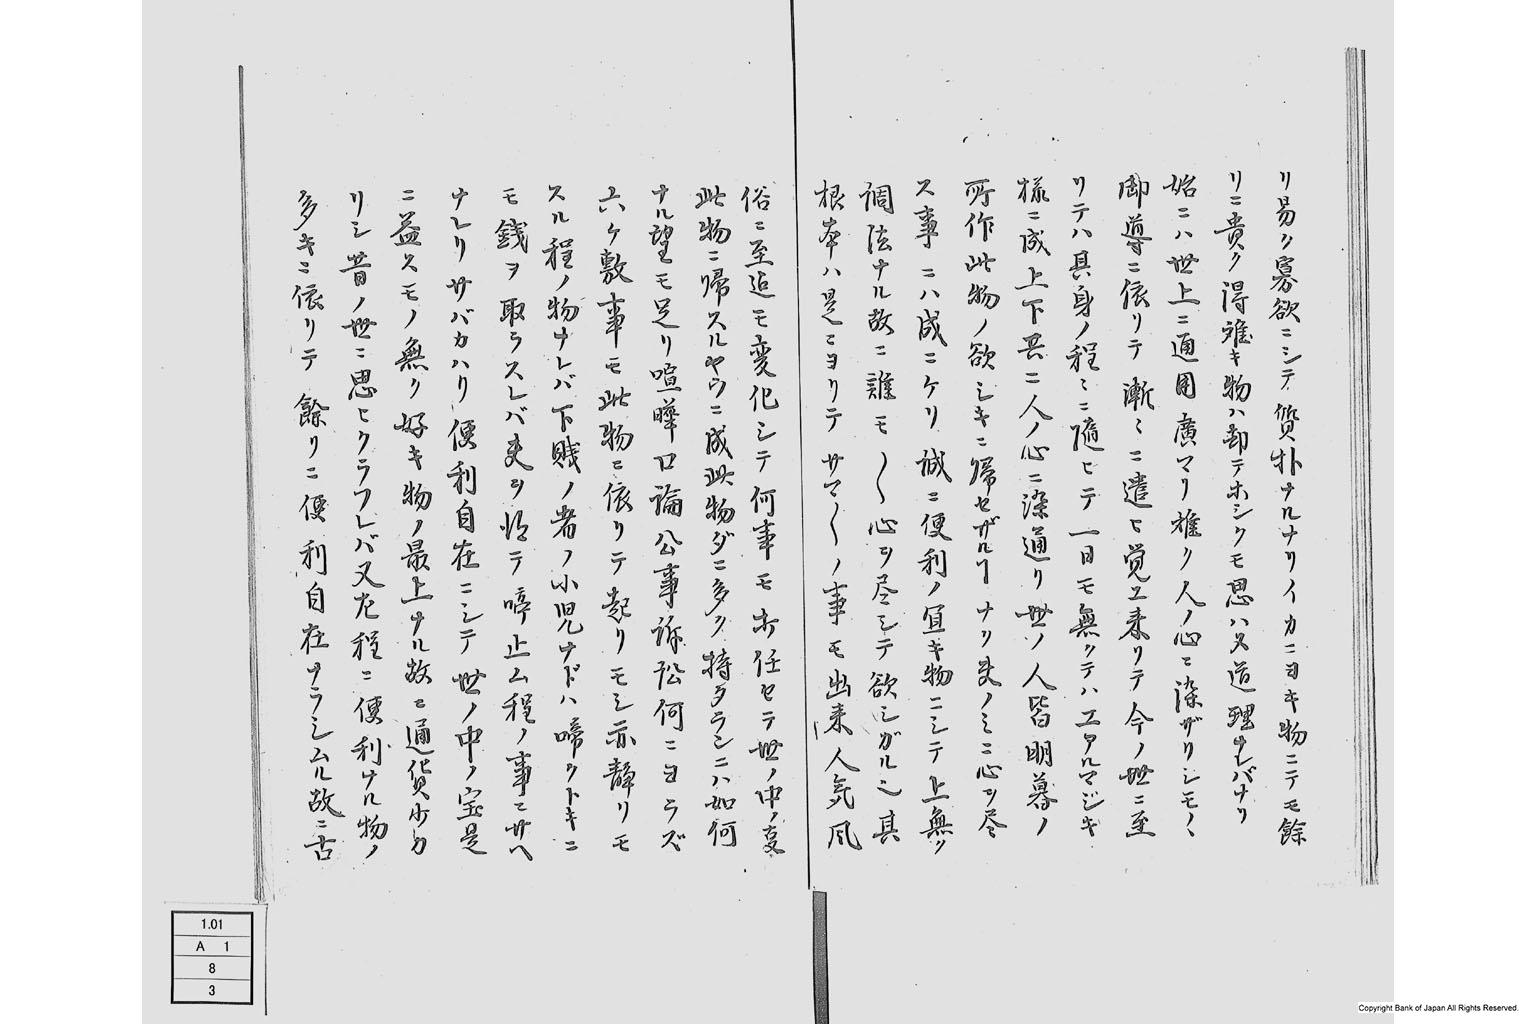 リ易ク寡欲ニシテ質朴ナルナリイカニヨキ物ニテモ餘
リニ貴ク得難キ物ハ却テホシクモ思ハヌ道理ナレバナリ
始ニハ世上ニ通用廣マリ難ク人ノ心ニ染ザリシモノヽ
御導ニ依リテ漸〻ニ遣ヒ覚エ来リテ今ノ世ニ至
リテハ其身ノ程〻ニ随ヒテ一日モ無クテハエアルマジキ
様ニ成上下共ニ人ノ心ニ染通リ世ノ人皆明暮ノ
所作此物ノ欲シキニ帰セザルヿナリ夫ノミニ心ヲ尽
ス事ニハ成ニケリ誠ニ便利ノ宜キ物ニシテ上無ク
調法ナル故ニ誰モ〳〵心ヲ尽シテ欲シガル也其
根本ハ是ニヨリテサマ〴〵ノ事モ出来人気風
俗ニ至迄モ変化シテ何事モ打任セテ世ノ中ノ変
此物ニ帰スルヤウニ成此物ダニ多ク持タランニハ如何
ナル望モ足リ喧嘩口論公事訴訟何ニヨラズ
六ケ敷事モ此物ニ依リテ起リモシ亦静リモ
スル程ノ物ナレバ下賎ノ者ノ小児ナドハ啼クトキニ
モ銭ヲ取ラスレバ夫ヲ悦テ啼止ム程ノ事ニサヘ
ナレリサバカハリ便利自在ニシテ世ノ中ノ宝是
ニ益スモノ無ク好キ物ノ最上ナル故ニ通貨少カ
リシ昔ノ世ニ思ヒクラフレバ又尤程ニ便利ナル物ノ
多キニ依リテ餘リニ便利自在ナラシムル故ニ古
1.01
A 1
8
3
Copyright Bank of Japan All Rights Reserved.